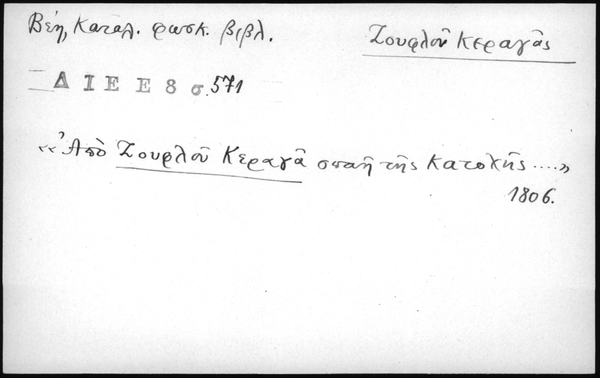 Βέη, Καταλ. φωσκ. βιβλ.
Ζουφλοῦ Κεραγᾶς
ΔΙΕΕ 8 σ. 571
«Ἀπὸ Ζουφλοῦ Κεραγᾶ σπαῆ τῆς Κατοχῆς ....»
1806.